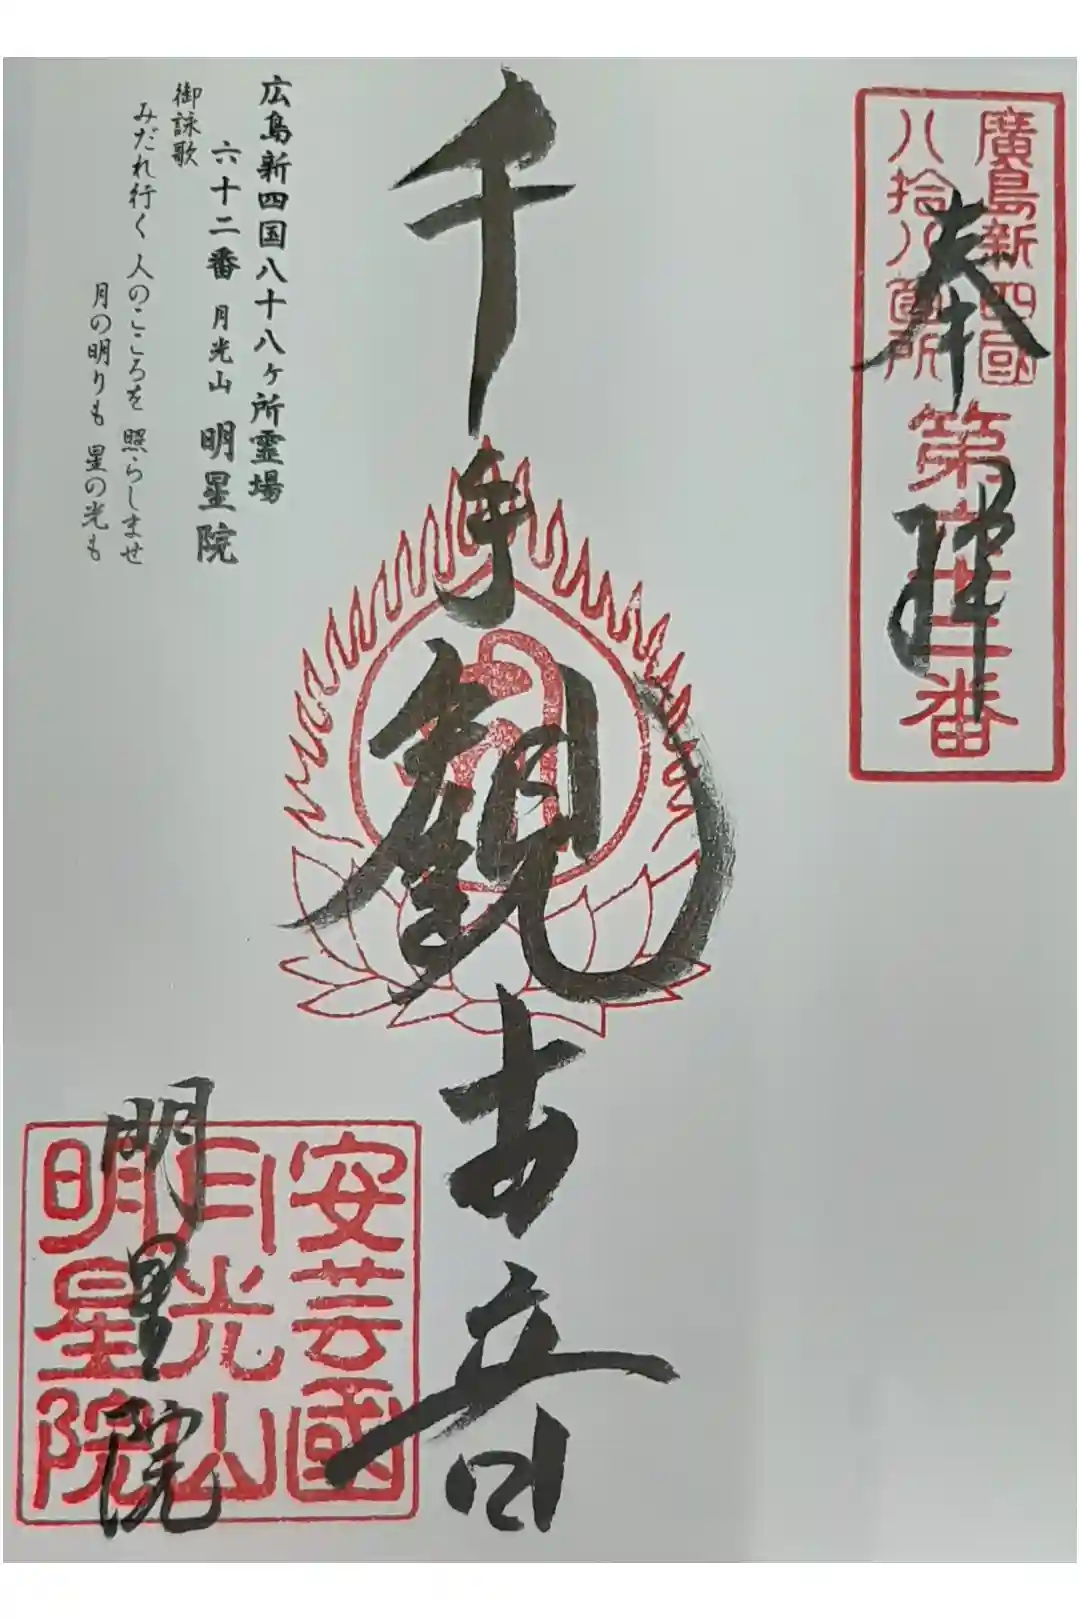 廣島新四國
八拾八箇所
第六十二番
奉拝
千手観世音
広島新四国八十八ヶ所霊場
六十二番 月光山 明星院
御詠歌
みだれ行く 人のこころを 照らしませ
月の明りも 星の光も
安芸國
月光山
明星院
明星院